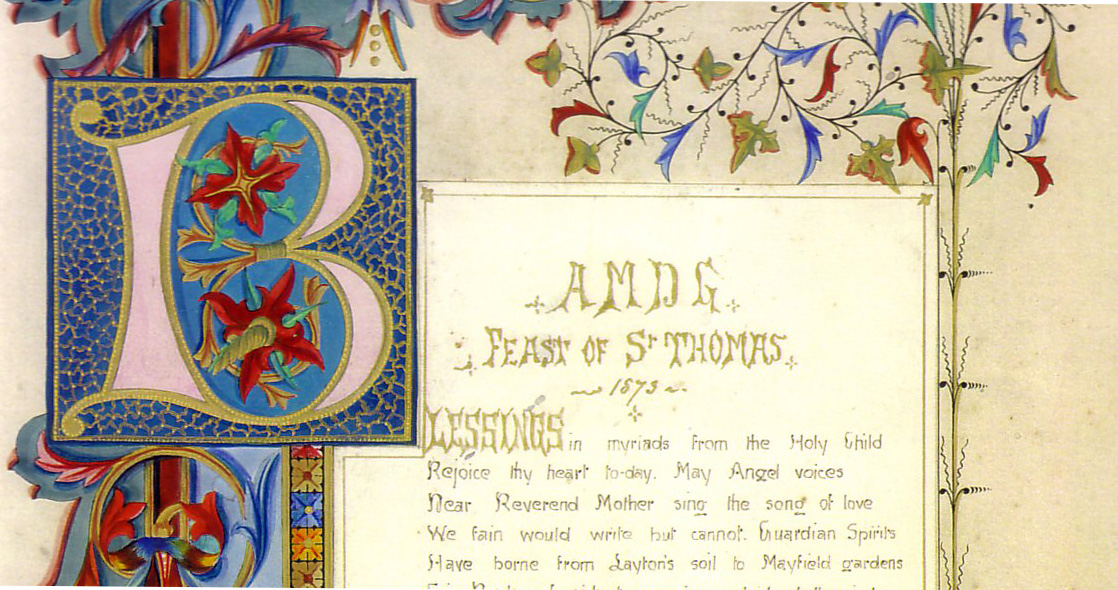 A M D G
FEAST OF St THOMAS
1873
BLESSINGS in myriads from the Holy Child
Rejoice thy heart to-day. May Angel voices
Near Reverend Mother sing the song of love
We fain would write but cannot. Guardian Spirits
Have borne from Layton's soil to Mayfield gardens